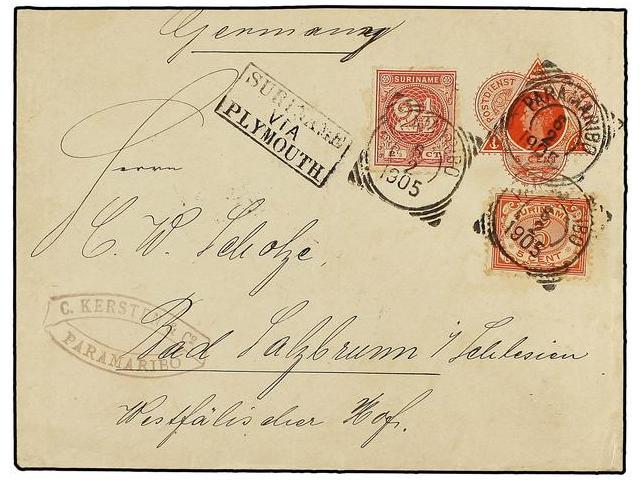 Germany
SURINAME
VIA
PLYMOUTH
SURINAME
2½
CT
POSTDIENST
CENT
PARAMARIBO
2
1905
1905
SURINAME
5
CENT
2
1905
Herrn
C. W. Scholze,
C. KERSTEN & Co
PARAMARIBO
Bad Salzbrunn i/Schlesien
Westfälischer Hof.